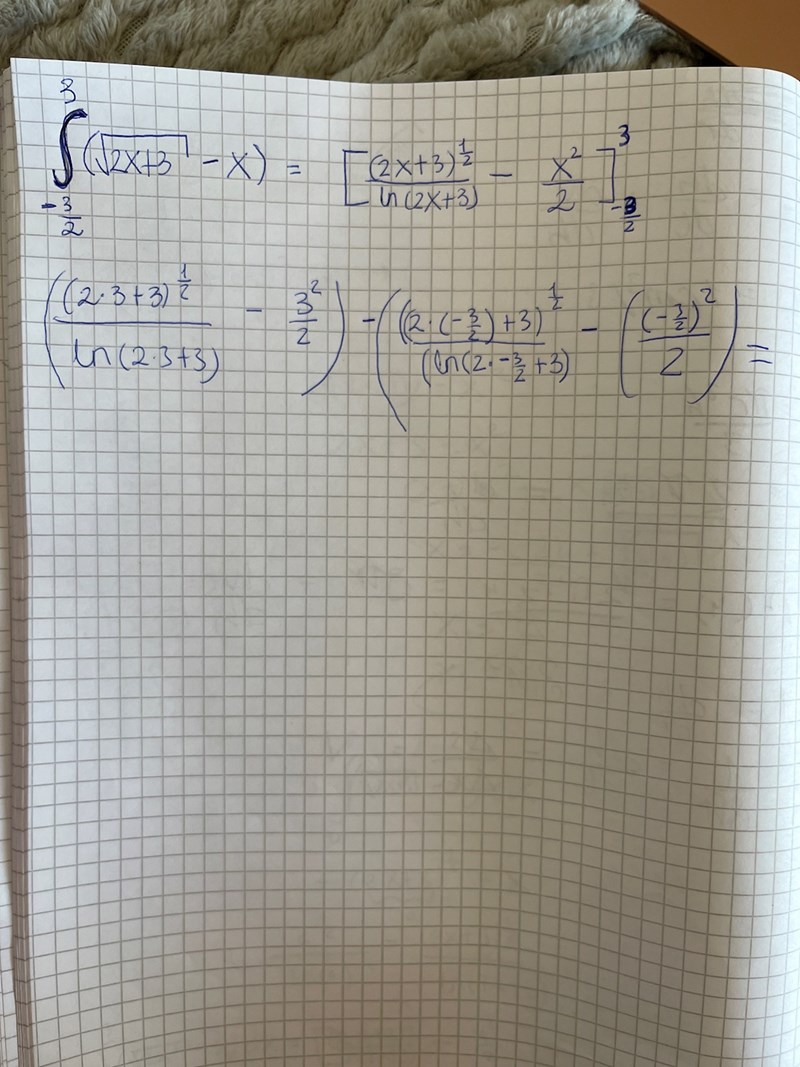 ∫_{-3/2}^{3} (√(2x+3) - x) = [ (2x+3)^{1/2} / ln(2x+3) - x²/2 ]_{-3/2}^{3}
( (2·3+3)^{1/2} / ln(2·3+3) - 3²/2 ) - ( ((2·(-3/2)+3)^{1/2} / (ln(2·-3/2+3) - ( (-3/2)² / 2 ) =